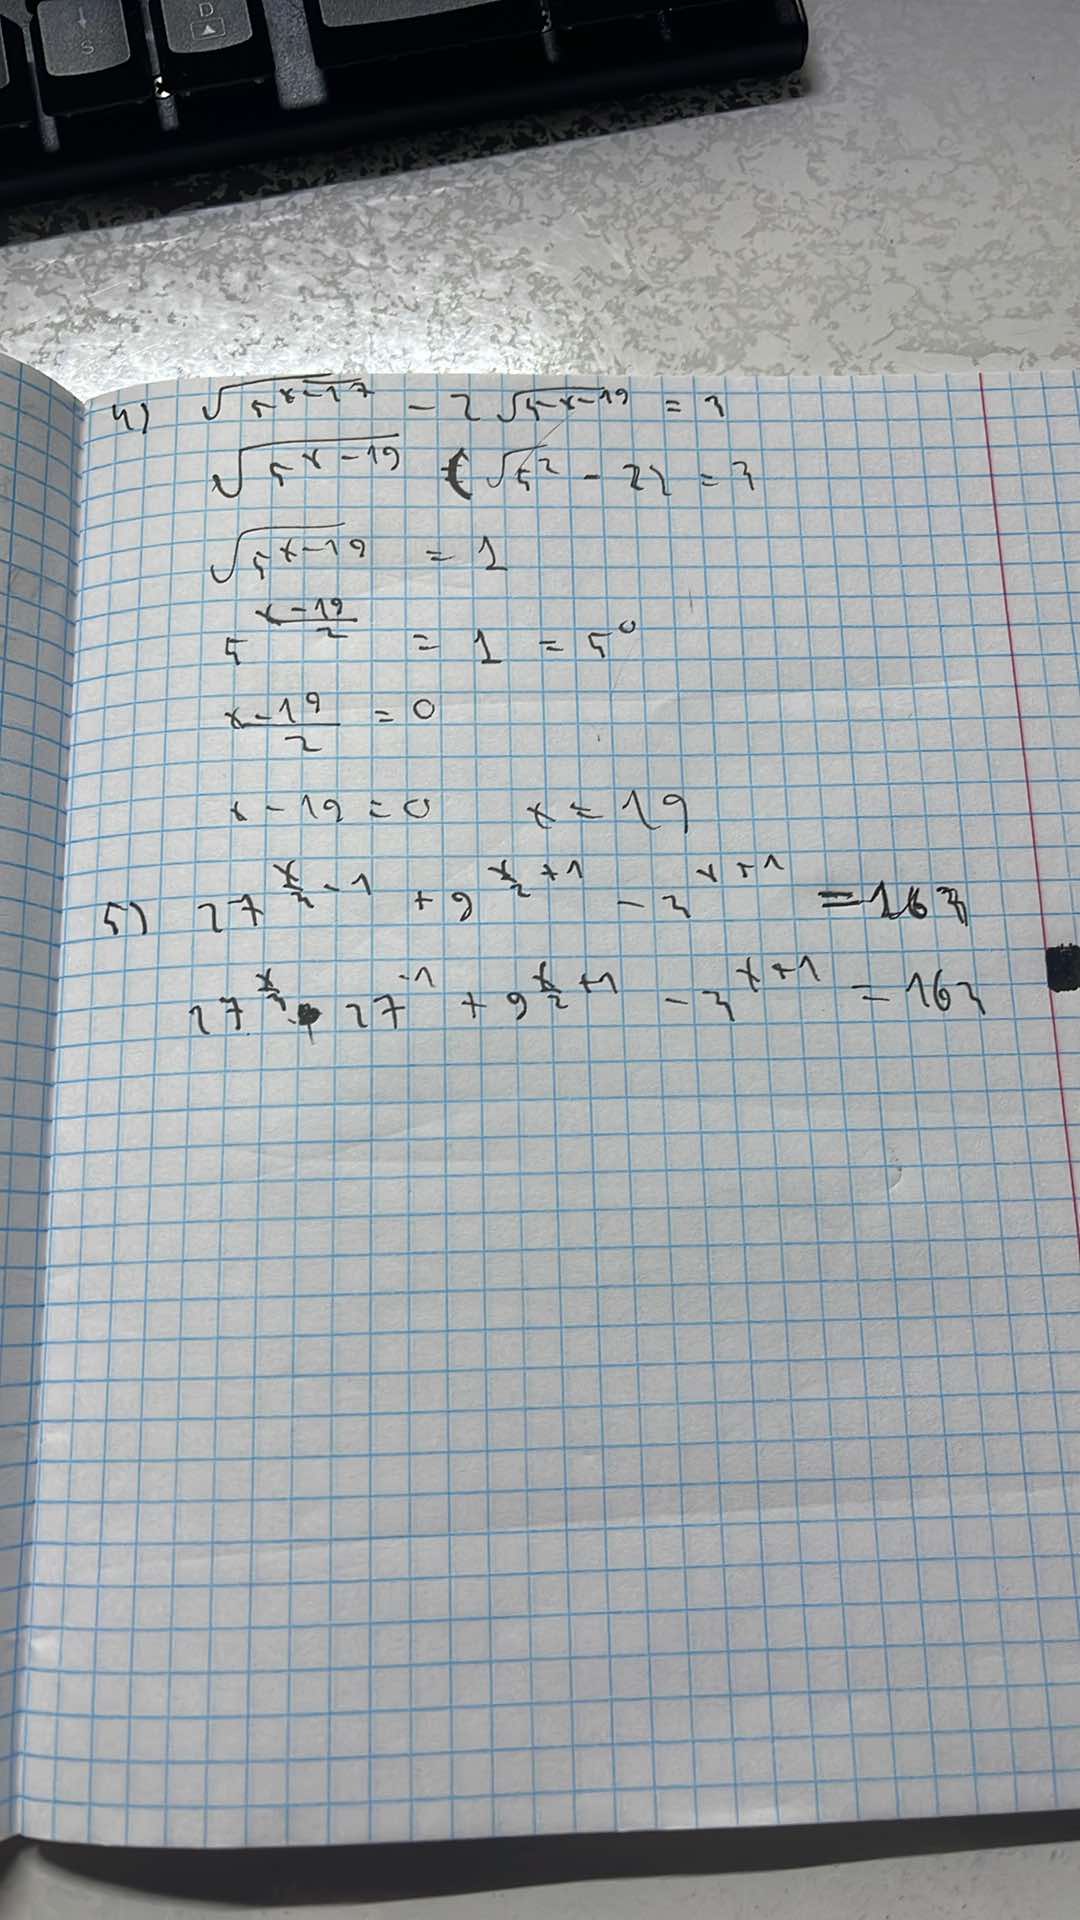 S
D
4) √5^(x-17) - 2√5^(x-19) = 3
√5^(x-19) (√5² - 2) = 3
√5^(x-19) = 1
5^((x-19)/2) = 1 = 5^0
(x-19)/2 = 0
x - 19 = 0 x = 19
5) 27^(x/3 - 1) + 9^(x/2 + 1) - 3^(x+1) = 163
27^(x/3) · 27^(-1) + 9^(x/2 + 1) - 3^(x+1) = 163